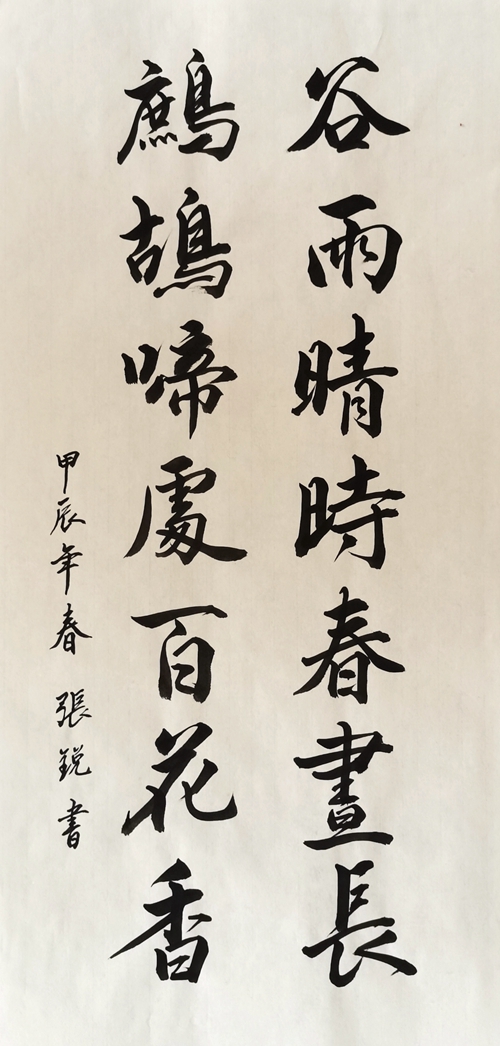 谷雨晴時春晝長
鷓鴣啼處百花香
甲辰年春 張銳書